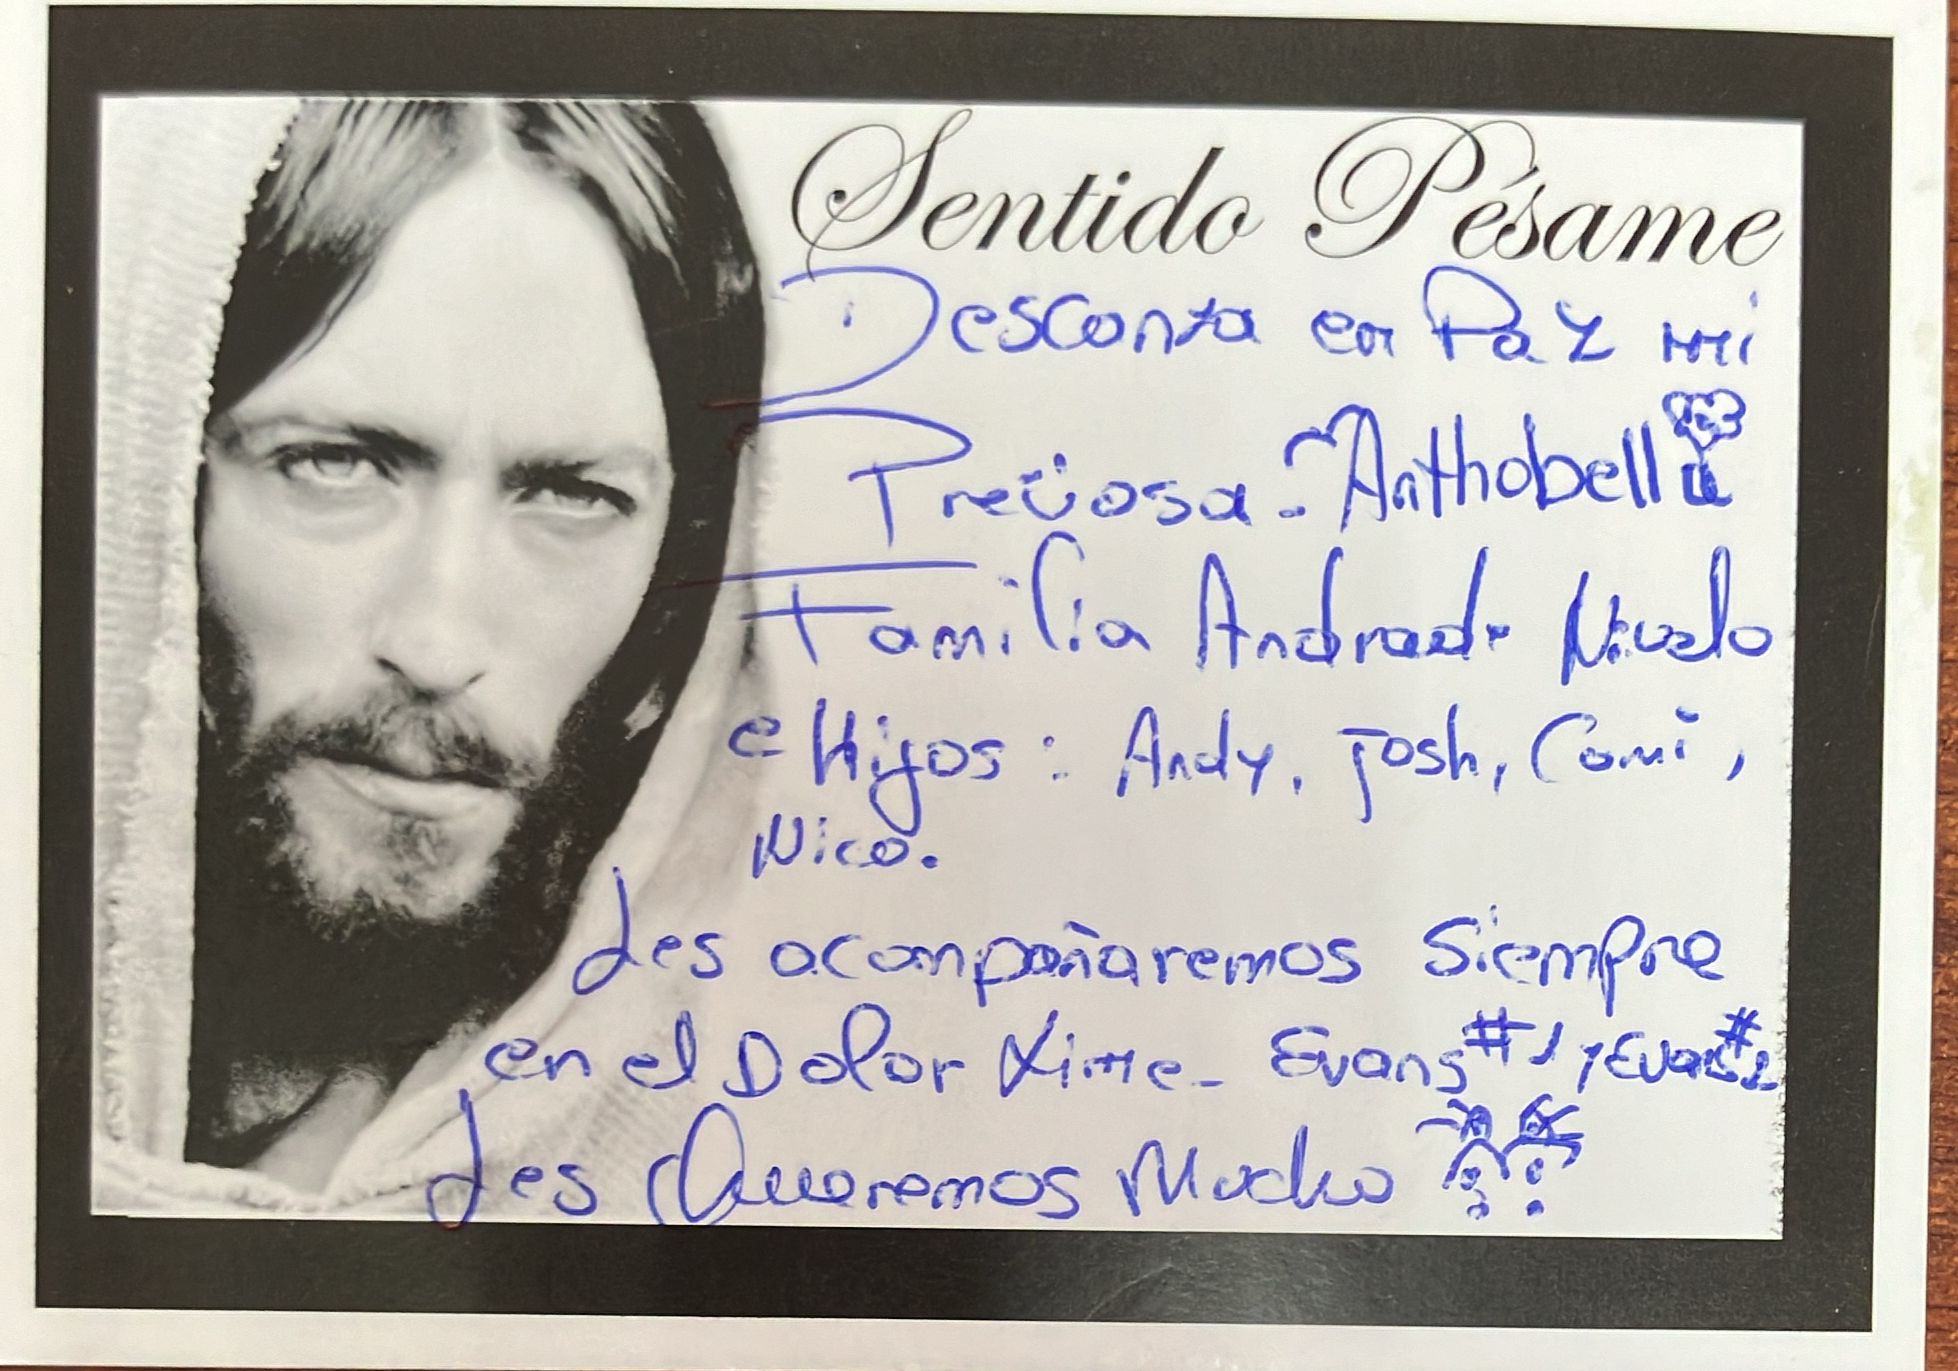 Sentido Pésame
Desconza en Paz mi
Preciosa. Anthobella
Familia Andrade Nivelo
e Hijos: Andy, Josh, Cami,
Nico.
Les acompañaremos Siempre
en el Dolor Xime - Evans #1 y Evans #2
Les Queremos Mucho